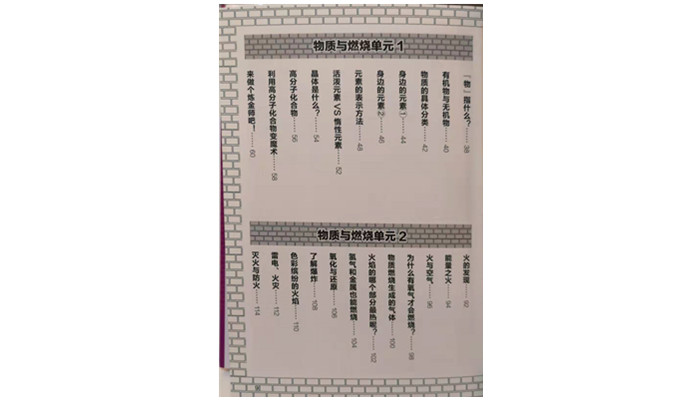 物质与燃烧单元 1
「物」指什么？……38
有机物与无机物……40
物质的具体分类……42
身边的元素①……44
身边的元素②……46
元素的表示方法……48
活泼元素 VS 惰性元素……52
晶体是什么？……54
高分子化合物……56
利用高分子化合物变魔术……58
来做个炼金师吧！……60
物质与燃烧单元 2
火的发现……92
能量之火……94
火与空气……96
为什么有氧气才会燃烧？……98
物质燃烧生成的气体……100
火焰的哪个部分最热呢？……102
氢气和金属也能燃烧……104
氧化与还原……106
了解爆炸……108
色彩缤纷的火焰……110
雷电、火灾……112
灭火与防火……114